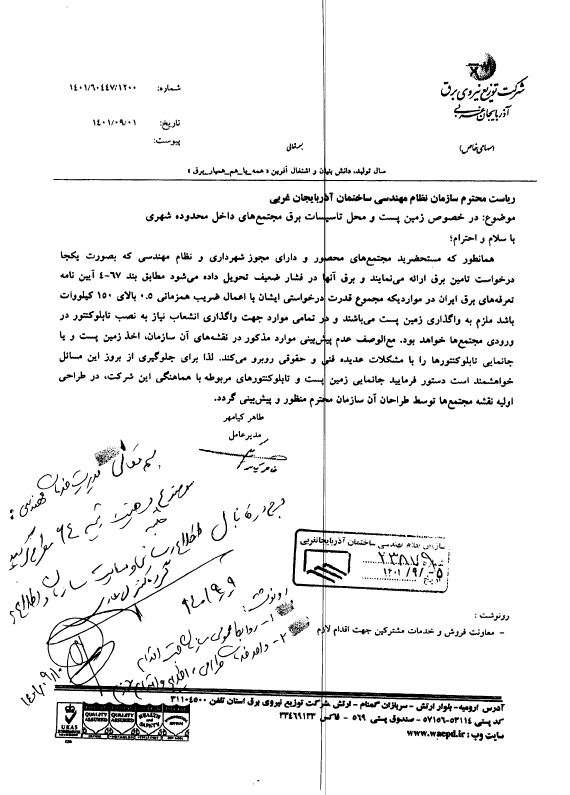 شرکت توزیع نیروی برق
آذربایجان غربی
(سهامی خاص)
شماره: ۱۴۰۱/۶۰۴۴۷/۱۲۰۰
تاریخ: ۱۴۰۱/۰۹/۰۱
پیوست:
بسمتعالی
سال تولید، دانش بنیان و اشتغال آفرین « همه_با_هم_همیار_برق »
ریاست محترم سازمان نظام مهندسی ساختمان آذربایجان غربی
موضوع: در خصوص زمین پست و محل تاسیسات برق مجتمع‌های داخل محدوده شهری
با سلام و احترام؛
همانطور که مستحضرید مجتمع‌های محصور و دارای مجوز شهرداری و نظام مهندسی که بصورت یکجا
درخواست تامین برق ارائه می‌نمایند و برق آنها در فشار ضعیف تحویل داده می‌شود مطابق بند ۶۷-۴ آیین نامه
تعرفه‌های برق ایران در مواردیکه مجموع قدرت درخواستی ایشان با اعمال ضریب همزمانی ۰.۵ بالای ۱۵۰ کیلووات
باشد ملزم به واگذاری زمین پست می‌باشند و در تمامی موارد جهت واگذاری انشعاب نیاز به نصب تابلوکنتور در
ورودی مجتمع‌ها خواهد بود. مع‌الوصف عدم پیش‌بینی موارد مذکور در نقشه‌های آن سازمان، اخذ زمین پست و یا
جانمایی تابلوکنتورها را با مشکلات عدیده فنی و حقوقی روبرو می‌کند. لذا برای جلوگیری از بروز این مسائل
خواهشمند است دستور فرمایید جانمایی زمین پست و تابلوکنتورهای مربوطه با هماهنگی این شرکت، در طراحی
اولیه نقشه مجتمع‌ها توسط طراحان آن سازمان محترم منظور و پیش‌بینی گردد.
طاهر کیامهر
مدیرعامل
بسمه تعالی
سازمان نظام مهندسی ساختمان آذربایجانغربی
۲۳۸۷۹
۱۴۰۱/۹/۰۵
۱۴۰۱/۹/۹
رونوشت:
۱- روابط عمومی جهت اقدام
رونوشت :
- معاونت فروش و خدمات مشترکین جهت اقدام لازم
آدرس: ارومیه- بلوار ارتش - سربازان گمنام - ارتش .شرکت توزیع نیروی برق استان تلفن ۳۱۱۰۴۵۰۰
کد پستی ۵۳۱۱۴-۵۷۱۵۶ - صندوق پستی ۵۶۹ - فاکس ۳۳۴۶۹۱۳۳
سایت وب : www.waepd.ir
UKAS
QUALITY ASSURED
QUALITY ASSURED
HEALTH and SAFETY